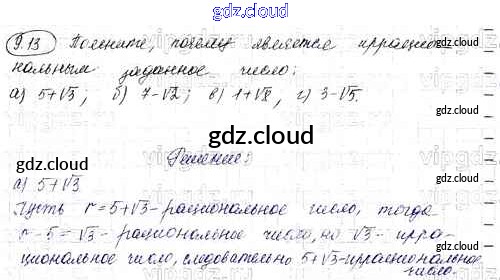 gdz.cloud
9.13 Поясните, почему является иррацио-
нальным заданное число:
а) 5+√3; б) 7-√2; в) 1+√2, г) 3-√5.
gdz.cloud
gdz.cloud gdz.cloud
Решение:
а) 5+√3.
Пусть r=5+√3-рациональное число, тогда
r-5=√3- рациональное число, но √3- ирра-
циональное число, следовательно 5+√3-иррациональное
число.
gdz.cloud